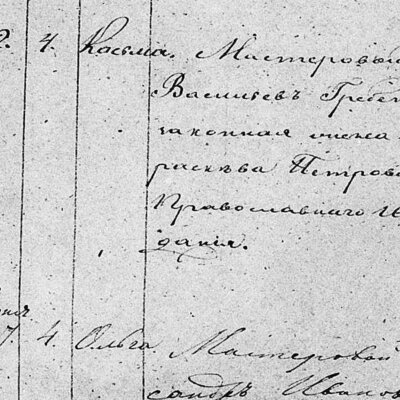 2. 4. Косьма. Мастеровой
Васильевъ Гребен
законная жена
раскѣва Петрова
Православнаго Ис
данія.
7. 4 Ольга Мастеровой
сандръ Иванов